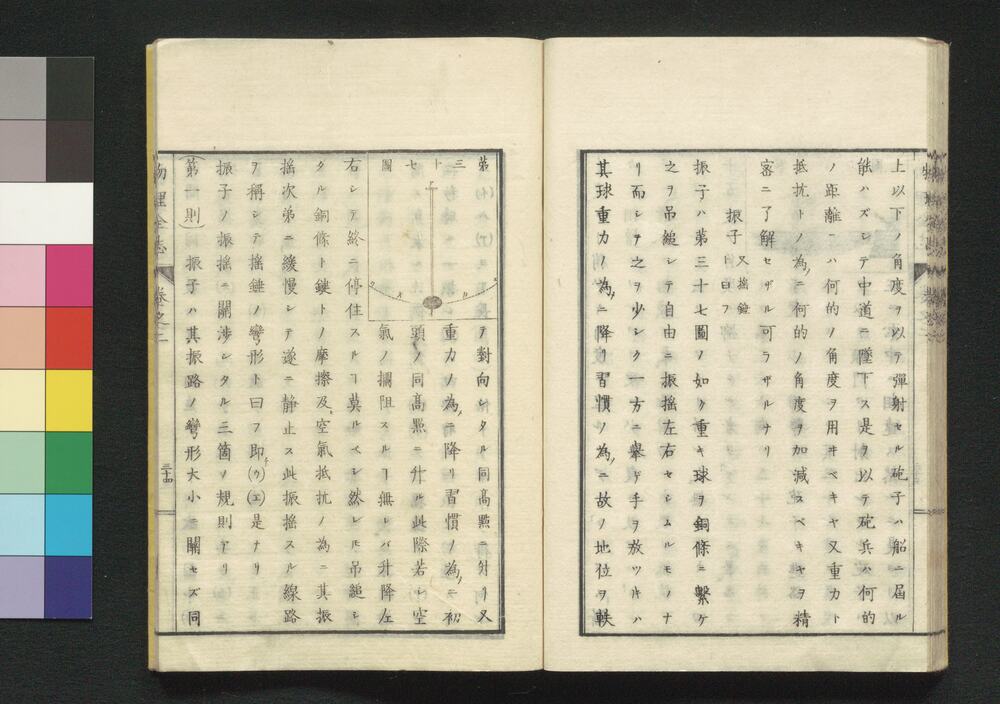 上以下ノ角度ヲ以テ彈射セル砲子ハ船ニ屆ル
能ハズシテ中道ニ墜下ス是ヲ以テ砲兵ハ何的
ノ距離ニハ何的ノ角度ヲ用ヰベキヤ又重力ト
抵抗トノ為ニ何的ノ角度ヲ加減スベキヤヲ精
密ニ了解セザル可ラザルナリ
振子 又搖錘ト曰フ
振子ハ第三十七圖ノ如ク重キ球ヲ銅條ニ繫ケ
之ヲ吊縋シテ自由ニ振搖左右セシムルモノナ
リ而シテ之ヲ少シク一方ニ舉ゲ手ヲ放ツトキハ
其球重力ノ為ニ降リ習慣ノ為ニ故ノ地位ヲ軼
第三十七圖
テ對向シタル同高點ニ升リ又
重力ノ為ニ降リ習慣ノ為ニ初
頭ノ同高點ニ升ル此際若シ空
氣ノ攔阻スルヿ無レバ升降左
右シテ終ニ停住スルヿ莫ルベシ然レドモ吊縋シ
タル銅條ト鏈トノ摩擦及空氣抵抗ノ為ニ其振
搖次第ニ緩慢シテ遂ニ静止ス此振搖スル線路
ヲ稱シテ搖錘ノ彎形ト曰フ即(ウ)(エ)是ナリ
振子ノ振搖ニ關涉シタル三箇ノ規則アリ
(第一則)振子ハ其振路ノ彎形大小ニ關セズ同
物理全志 卷之二
三十四